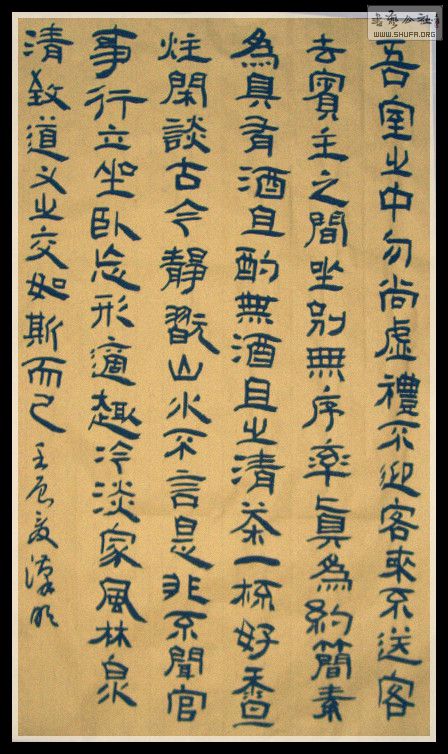 書藝公社
WWW.SHUFA.ORG
吾室之中勿尚虛禮不迎客來不送客
去賓主之間坐別無序率眞為約簡素
為具有酒且酌無酒且止清茶一杯好香一
炷閑談古今靜翫山水不言是非不聞官
事行立坐臥忘形適趣冷淡家風林泉
清致道义之交如斯而已
壬辰夏漢明